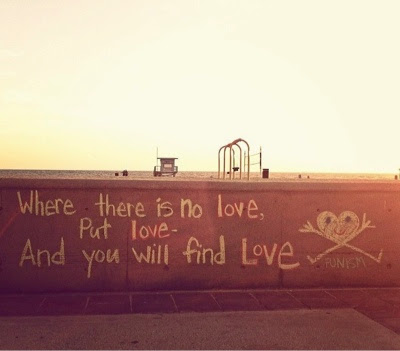 Where there is no love,
Put love -
And you will find Love
FUNISM